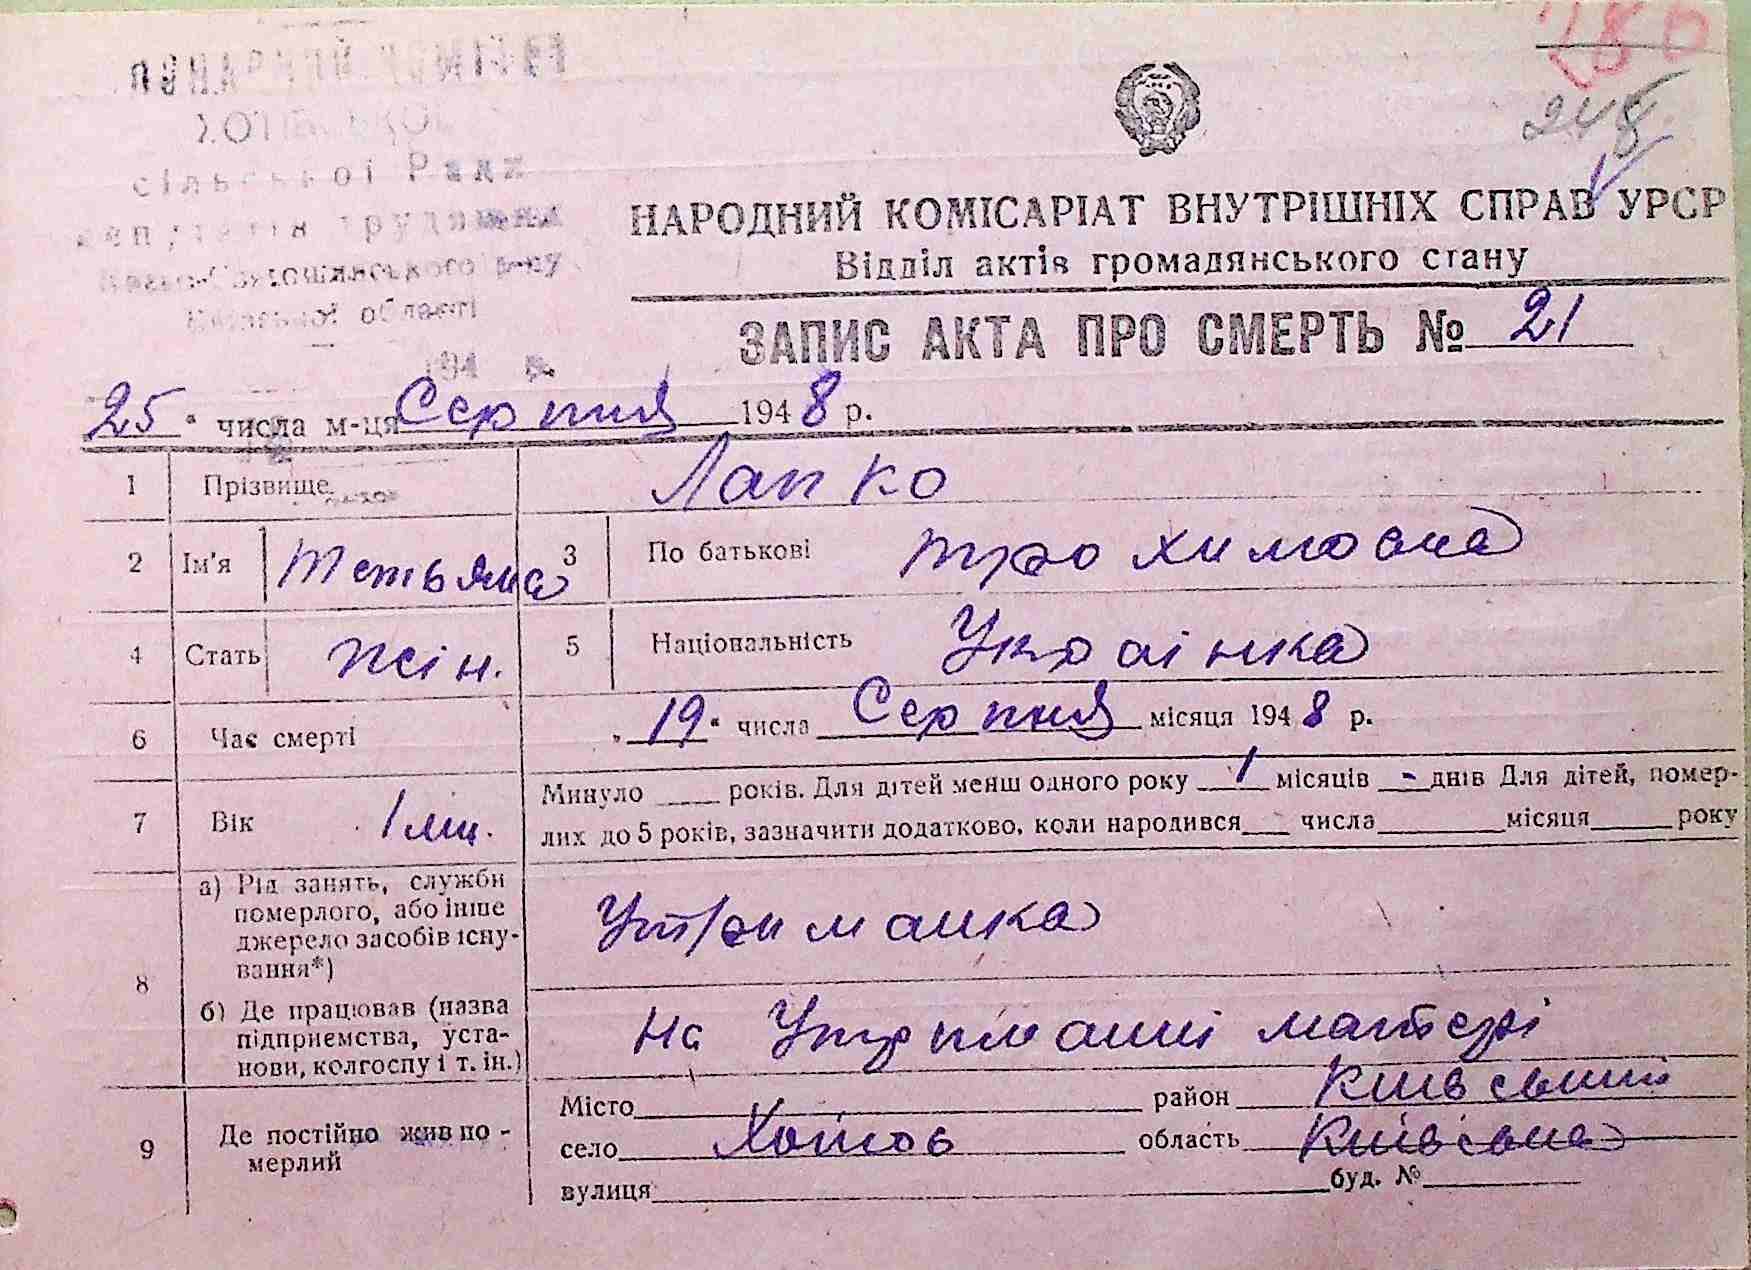 280
248
сільської Ради
депутатів трудящих
Києво-Святошинського р-ну
Київської області
194 р.
НАРОДНИЙ КОМІСАРІАТ ВНУТРІШНІХ СПРАВ УРСР
Відділ актів громадянського стану
ЗАПИС АКТА ПРО СМЕРТЬ № 21
25 " числа м-ця Серпня 1948 р.
1 Прізвище Лапко
2 Ім'я Тетьяна 3 По батькові Трохимовна
4 Стать жін. 5 Національність Українка
6 Час смерті „19" числа Серпня місяця 1948 р.
7 Вік 1 мц. Минуло ____ років. Для дітей менш одного року 1 місяців - днів Для дітей, помер-
лих до 5 років, зазначити додатково, коли народився ___ числа ______ місяця ____ року
8 а) Рід занять, служби
померлого, або інше
джерело засобів існу-
вання*)
Утриманка
б) Де працював (назва
підприємства, уста-
нови, колгоспу і т. ін.)
на Утриманні матері
9 Де постійно жив по-
мерлий
Місто ______ район Київський
село Хотов область Київська
вулиця ______ буд. № ____